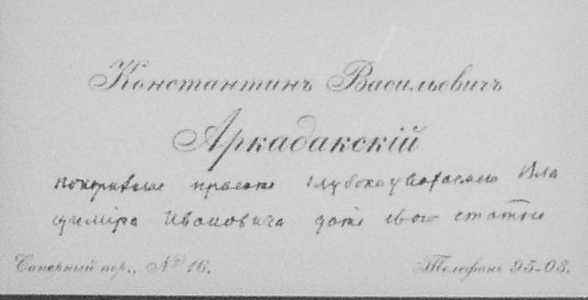 Константинъ Васильевичъ
Аркадакскій
покорнѣйше проситъ глубокоуважаемаго Вла
диміра Ивановича дать свою статью
Саперный пер., № 16. Телефонъ 95-03.